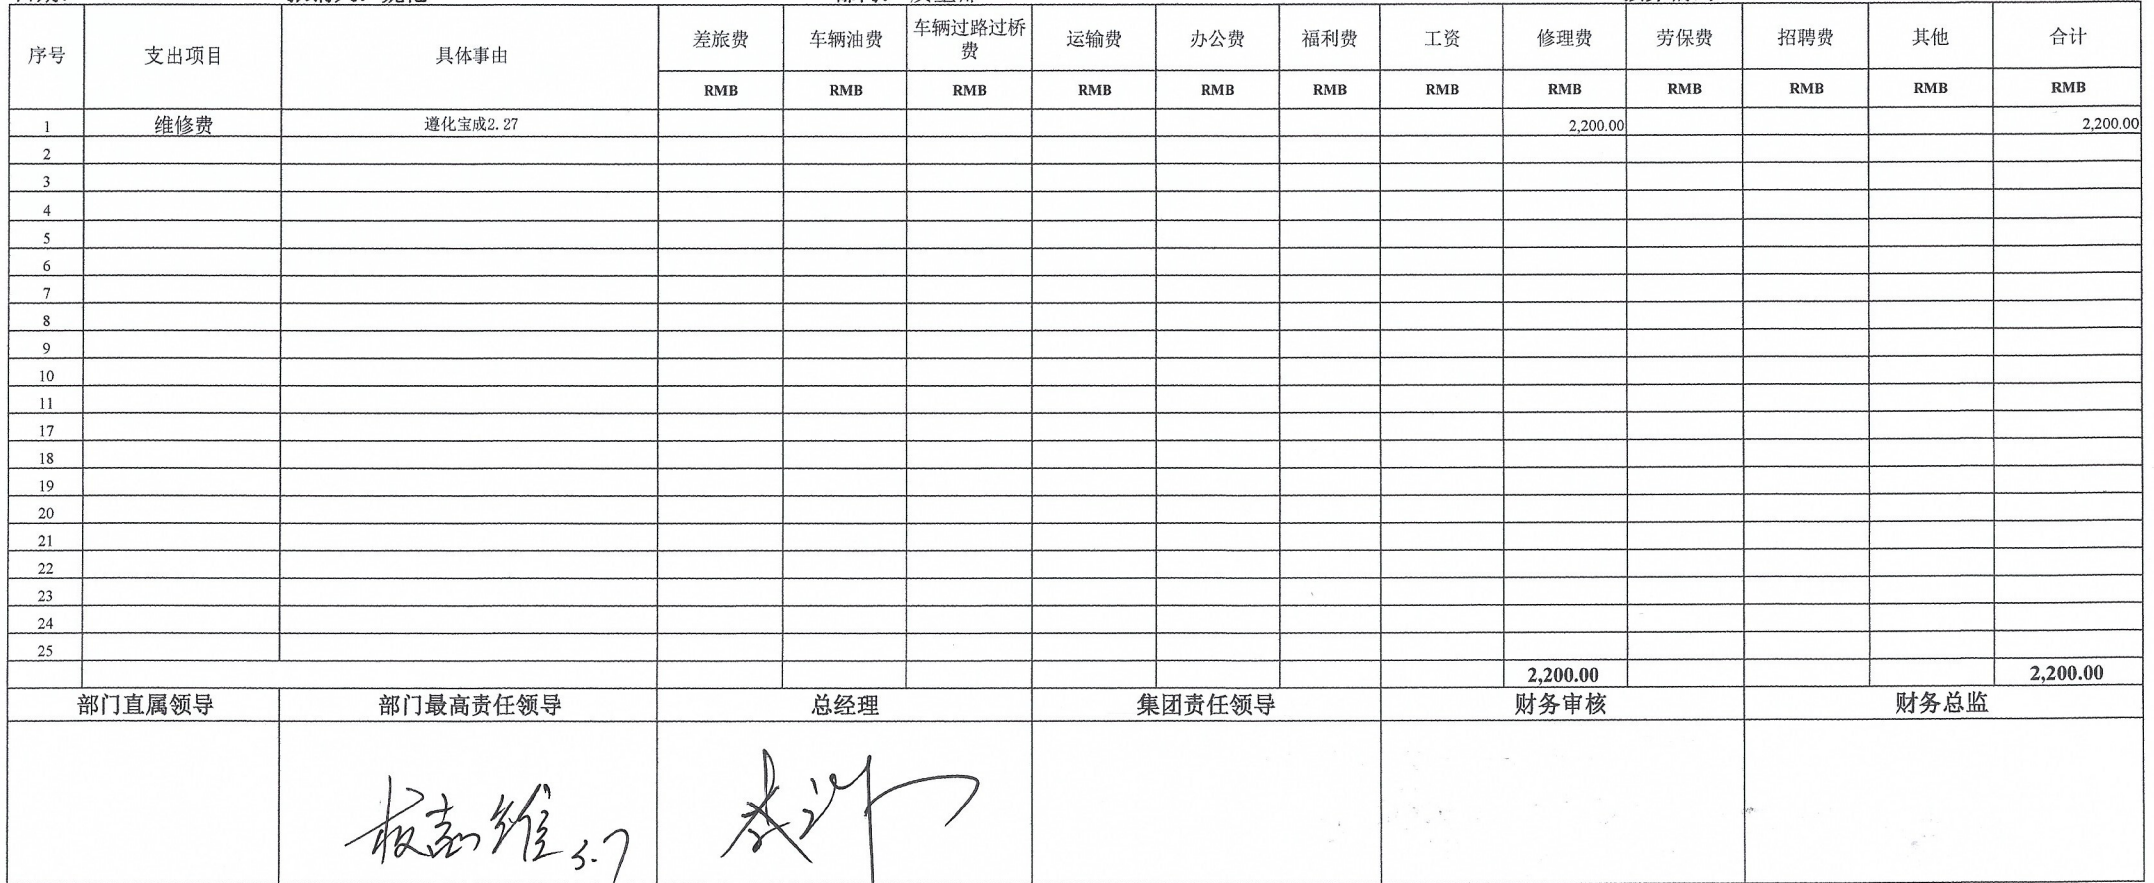 序号 支出项目 具体事由 差旅费 车辆油费 车辆过路过桥费 运输费 办公费 福利费 工资 修理费 劳保费 招聘费 其他 合计
RMB RMB RMB RMB RMB RMB RMB RMB RMB RMB RMB RMB
1 维修费 遵化宝成2.27 2,200.00 2,200.00
2
3
4
5
6
7
8
9
10
11
17
18
19
20
21
22
23
24
25
2,200.00 2,200.00
部门直属领导 部门最高责任领导 总经理 集团责任领导 财务审核 财务总监
3.7